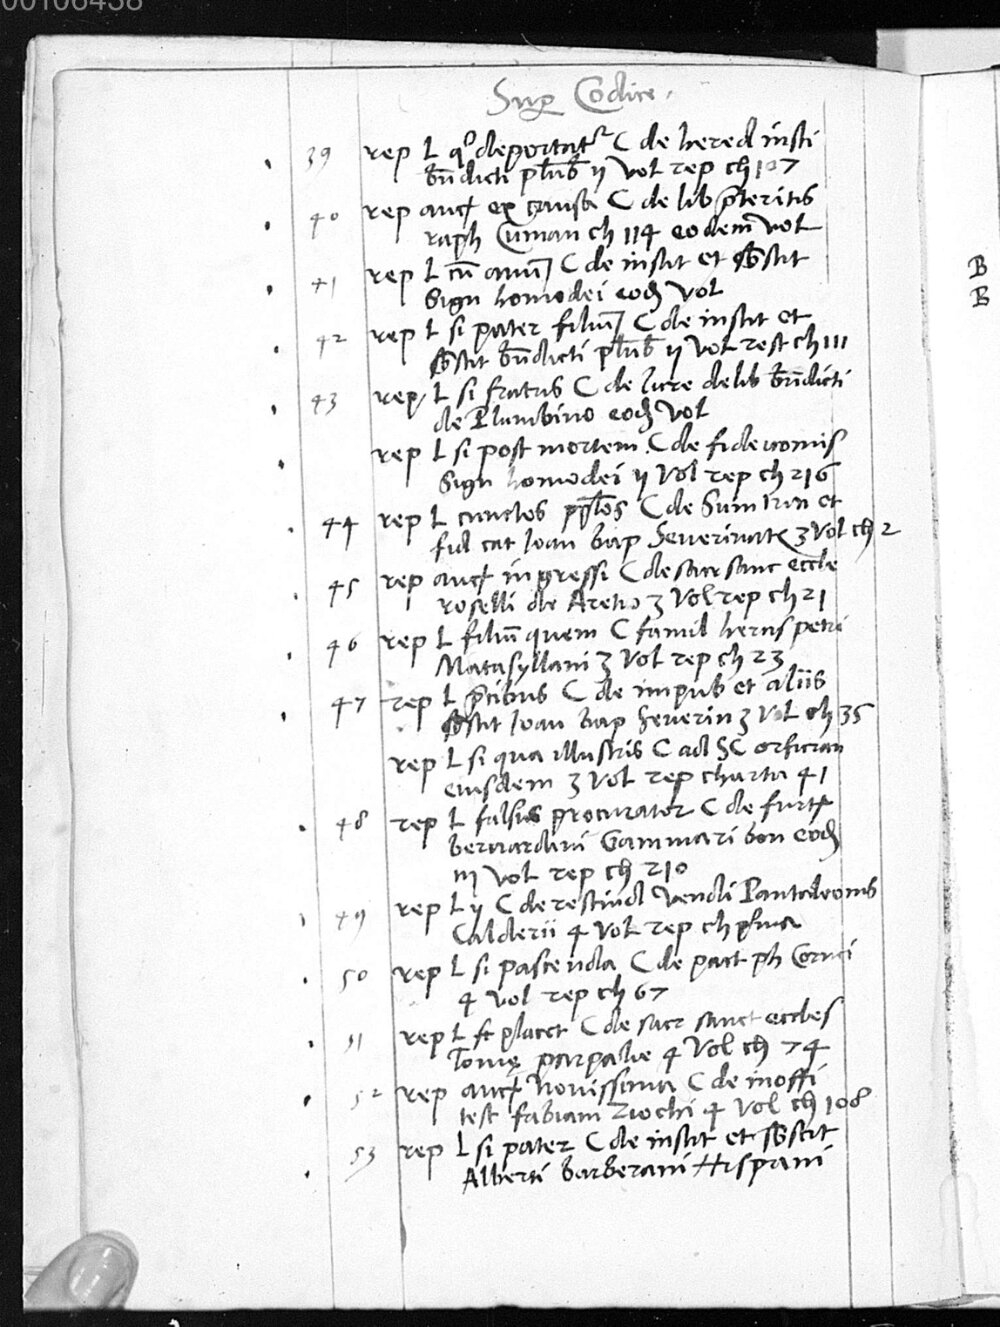 00106438
Sup Codice.
39 rep L q° deportatr C de hered insti
bndicti plub ij Vol rep ch 107
40 rep auct ex causa C de lib pteritis
raph Cuman ch 114 eodem vol
41 rep L cu avu C de instit et sbstit
Sign homodei eod Vol
42 rep L si pater filiu C de instit et
sbstit bndicti plub ij Vol rest ch 111
43 rep L si fratris C de iure delib bndicti
de Plumbino eod Vol
rep L si post mortem C de fideicomis
Sign homodei ij Vol rep ch 216
44 rep L cunctos pplos C de Sum trin et
fid cat Joan bap Severinat 3 Vol ch 2
45 rep auct ingressi C de sacr sanc eccle
roselli de Aretio 3 Vol rep ch 21
46 rep L filiu quem C famil hercis petri
Matasyllani 3 Vol rep ch 23
47 rep L pcibus C de impub et aliis
sbstit Joan bap Severin 3 Vol ch 35
rep L si qua illustris C ad SC orfician
eiusdem 3 Vol rep charta 41
48 rep L falsus procurator C de furt
bernardini Gammari bon eod
iij Vol rep ch 210
49 rep L ij C de rescind Vendi Pantaleonis
Calderii 4 Vol rep ch pma
50 rep L si pascenda C de pact ph Cornei
4 Vol rep ch 67
51 rep L placet C de sacr sanct eccles
Tome parpalie 4 Vol ch 74
52 rep auct Novissima C de inoffi
test fabiani Ziochi 4 Vol ch 108
53 rep L si pater C de instit et sbstit
Alberti barberani Hispani
B
B